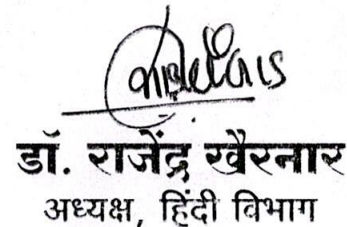 डॉ. राजेंद्र खैरनार
अध्यक्ष, हिंदी विभाग